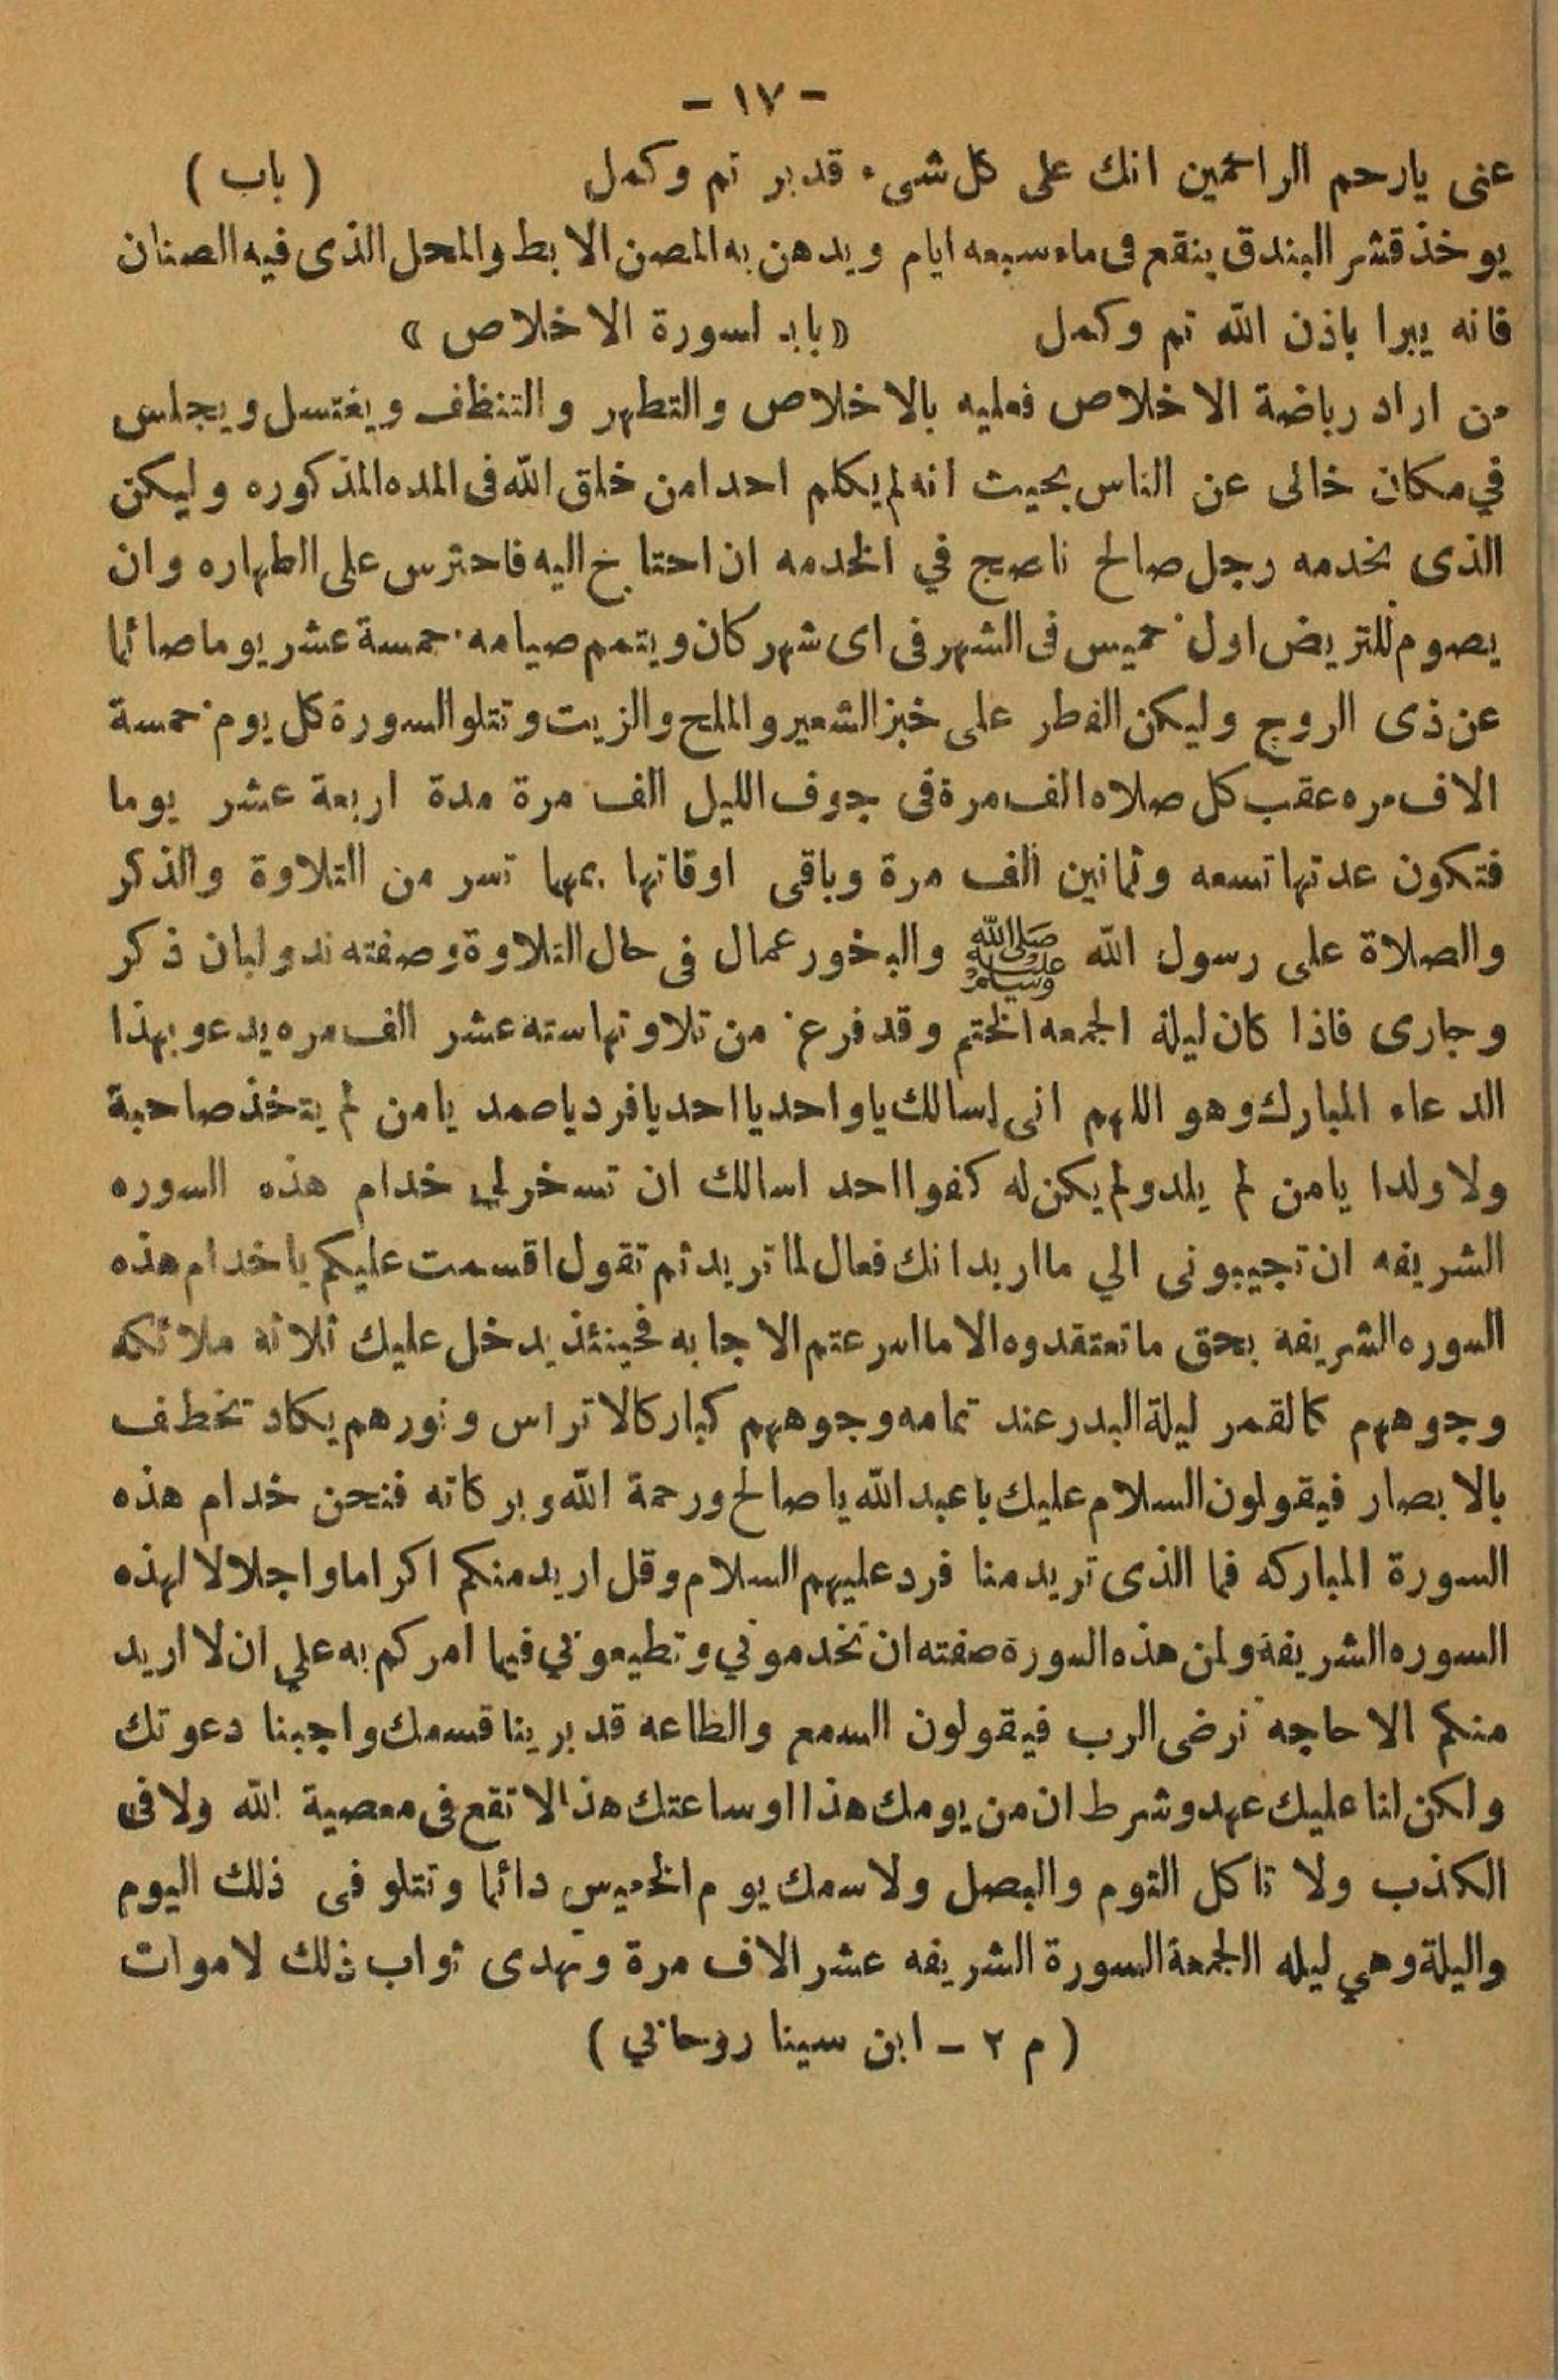 - ١٧ -
عنى يارحم الراحمين انك على كل شىء قدير تم وكمل ( باب )
يوخذ قشر البندق ينقع فى ماء سبعه ايام ويدهن به المصن الابط والمحل الذى فيه الصنان
فانه يبرا باذن الله تم وكمل « باب لسورة الاخلاص »
من اراد رياضة الاخلاص فعليه بالاخلاص والتطهر والتنظف ويغتسل ويجلس
في مكان خالى عن الناس بحيث انه لم يكلم احدا من خلق الله فى المده المذكوره وليكن
الذى يخدمه رجل صالح ناصح في الخدمه ان احتاج اليه فاحترس على الطهاره وان
يصوم للتريض اول خميس فى الشهر فى اى شهر كان ويتمم صيامه خمسة عشر يوما صائما
عن ذى الروح وليكن الفطر على خبز الشعير والملح والزيت وتتلو السورة كل يوم خمسة
الاف مره عقب كل صلاه الف مرة فى جوف الليل الف مرة مدة اربعة عشر يوما
فتكون عدتها تسعه وثمانين الف مرة وباقى اوقاتها بمهما تسر من التلاوة والذكر
والصلاة على رسول الله ﷺ والبخور عمال فى حال التلاوة وصفته ند ولبان ذكر
وجاوى فاذا كان ليلة الجمعه الختم وقد فرغ من تلاوتها سته عشر الف مره يدعو بهذا
الدعاء المبارك وهو اللهم انى اسالك يا واحد يا احد يا فرد يا صمد يا من لم يتخذ صاحبة
ولا ولدا يا من لم يلد ولم يكن له كفوا احد اسالك ان تسخر لي خدام هذه السوره
الشريفه ان تجيبونى الي ما اريد انك فعال لما تريد ثم تقول اقسمت عليكم يا خدام هذه
السوره الشريفة بحق ما تعتقدوه الا ما اسرعتم الاجابه فحينئذ يدخل عليك ثلاثه ملائكه
وجوههم كالقمر ليلة البدر عند تمامه وجوههم كبار كالاتراس ونورهم يكاد تخطف
بالابصار فيقولون السلام عليك يا عبد الله يا صالح ورحمة الله وبركاته فنحن خدام هذه
السورة المباركه فما الذى تريد منا فرد عليهم السلام وقل اريد منكم اكراما واجلالا لهذه
السوره الشريفة ولمن هذه السورة صفته ان تخدموني وتطيعوني فيما امركم به علي ان لا اريد
منكم الا حاجه ترضى الرب فيقولون السمع والطاعه قد برينا قسمك واجبنا دعوتك
ولكن لنا عليك عهد وشرط ان من يومك هذا او ساعتك هذا لا تقع فى معصية الله ولا فى
الكذب ولا تاكل الثوم والبصل ولا سمك يوم الخميس دائما وتتلو فى ذلك اليوم
واليلة وهي ليله الجمعة السورة الشريفه عشر الاف مرة وتهدى ثواب ذلك لاموات
( م ٢ - ابن سينا روحاني )